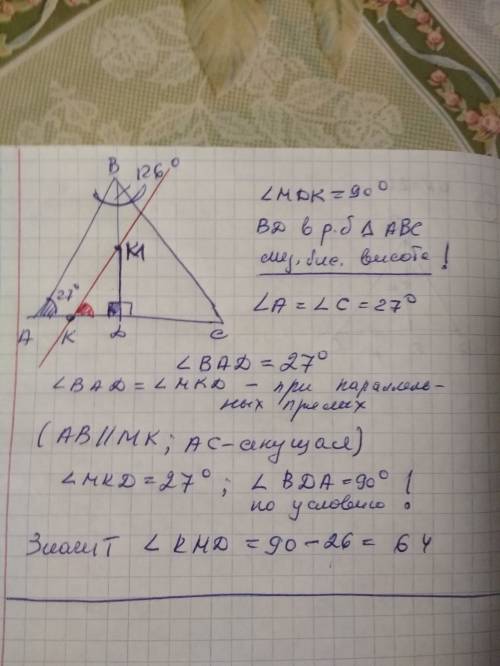 B
126°
∠MDK = 90°
BD в р.б Δ ABC
мед, бис. высота!
∠A = ∠C = 27°
M
27°
A K D C
∠BAD = 27°
∠BAD = ∠MKD – при параллель-
ных прямых
(AB // MK; AC – секущая)
∠MKD = 27°; ∠BDA = 90° !
по условию
Значит ∠KMD = 90 – 26 = 64